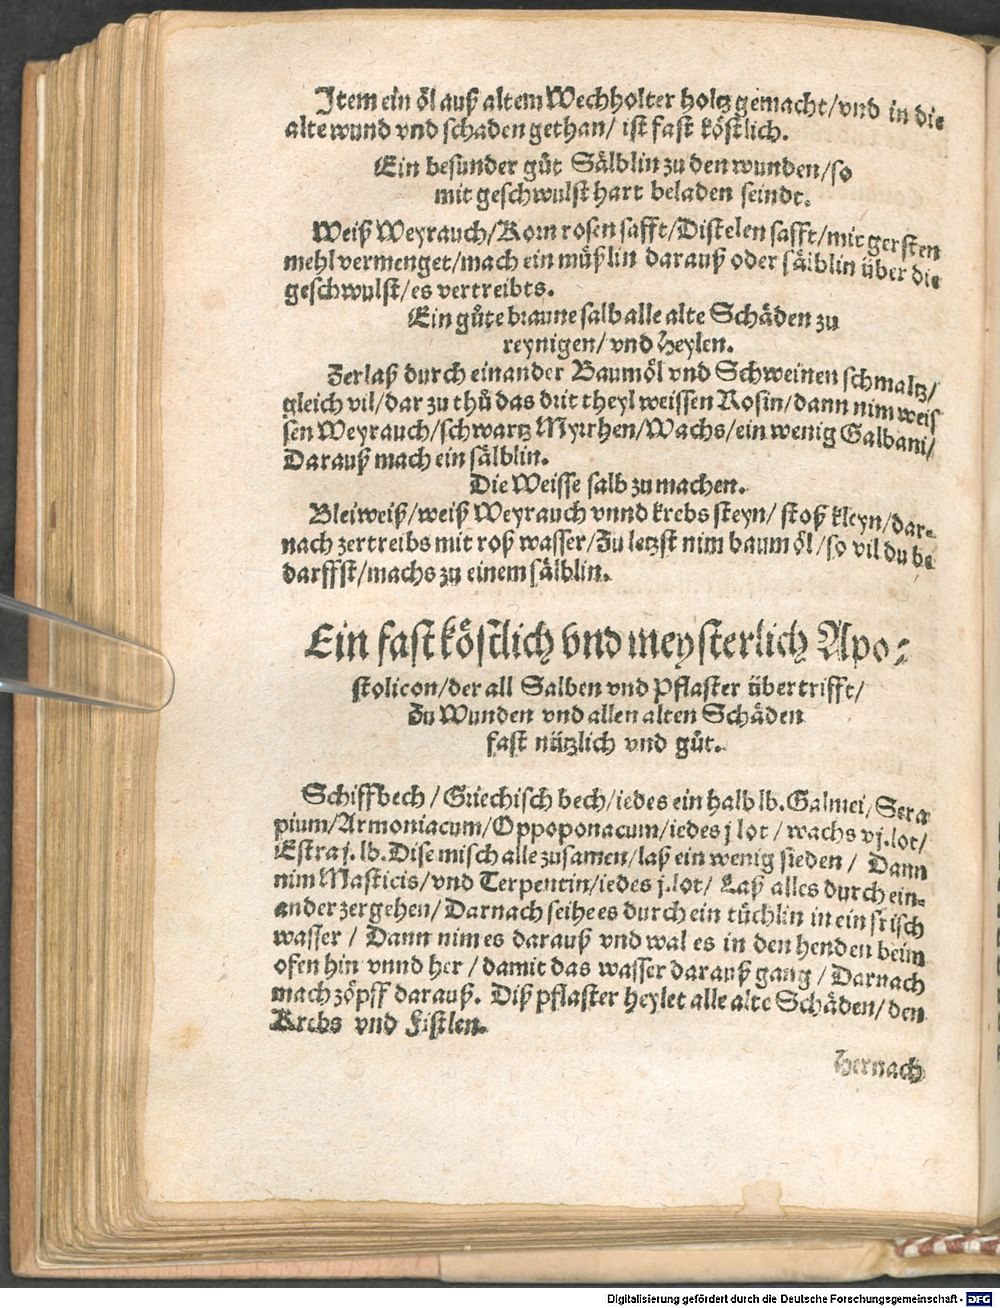 Item ein öl auß altem Wechholter holtz gemacht/vnd in die
alte wund vnd schaden gethan/ ist fast köstlich.
Ein besunder gůt Sälblin zu den wunden/so
mit geschwulst hart beladen seindt.
Weiß Weyrauch/Rom rosen safft/Distelen safft/mit gersten
mehl vermenget/mach ein müßlin darauß oder sälblin über die
geschwulst/es vertreibts.
Ein gůte braune salb alle alte Schäden zu
reynigen/ vnd Heylen.
Zerlaß durch einander Baumöl vnd Schweinen schmaltz/
gleich vil/dar zu thů das drit theyl weissen Rosin/dann nim weis
sen Weyrauch/schwartz Myrrhen/Wachs/ein wenig Galbani/
Darauß mach ein sälblin.
Die Weisse salb zu machen.
Bleiweiß/weiß Weyrauch vnnd krebs steyn/ stoß kleyn/dar-
nach zertreibs mit roß wasser/Zu letzst nim baum öl/so vil du be
darffst/machs zu einem sälblin.
Ein fast köstlich vnd meysterlich Apo-
stolicon/der all Salben vnd Pflaster übertrifft/
Zu Wunden vnd allen alten Schäden
fast nützlich vnd gůt.
Schiffbech/Griechisch bech/iedes ein halb lb. Galmei/Sera
pium/Armoniacum/Oppoponacum/iedes j lot/wachs vj.lot/
Estra j. lb. Dise misch alle zusamen/laß ein wenig sieden/ Dann
nim Masticis/vnd Terpentin/iedes j.lot/ Laß alles durch ein-
ander zergehen/Darnach seihe es durch ein tüchlin in ein frisch
wasser/ Dann nim es darauß vnd wal es in den henden beim
ofen hin vnnd her/damit das wasser darauß gang/Darnach
mach zöpff darauß. Diß pflaster heylet alle alte Schäden/den
Krebs vnd Fistlen.
Hernach
Digitalisierung gefördert durch die Deutsche Forschungsgemeinschaft - DFG